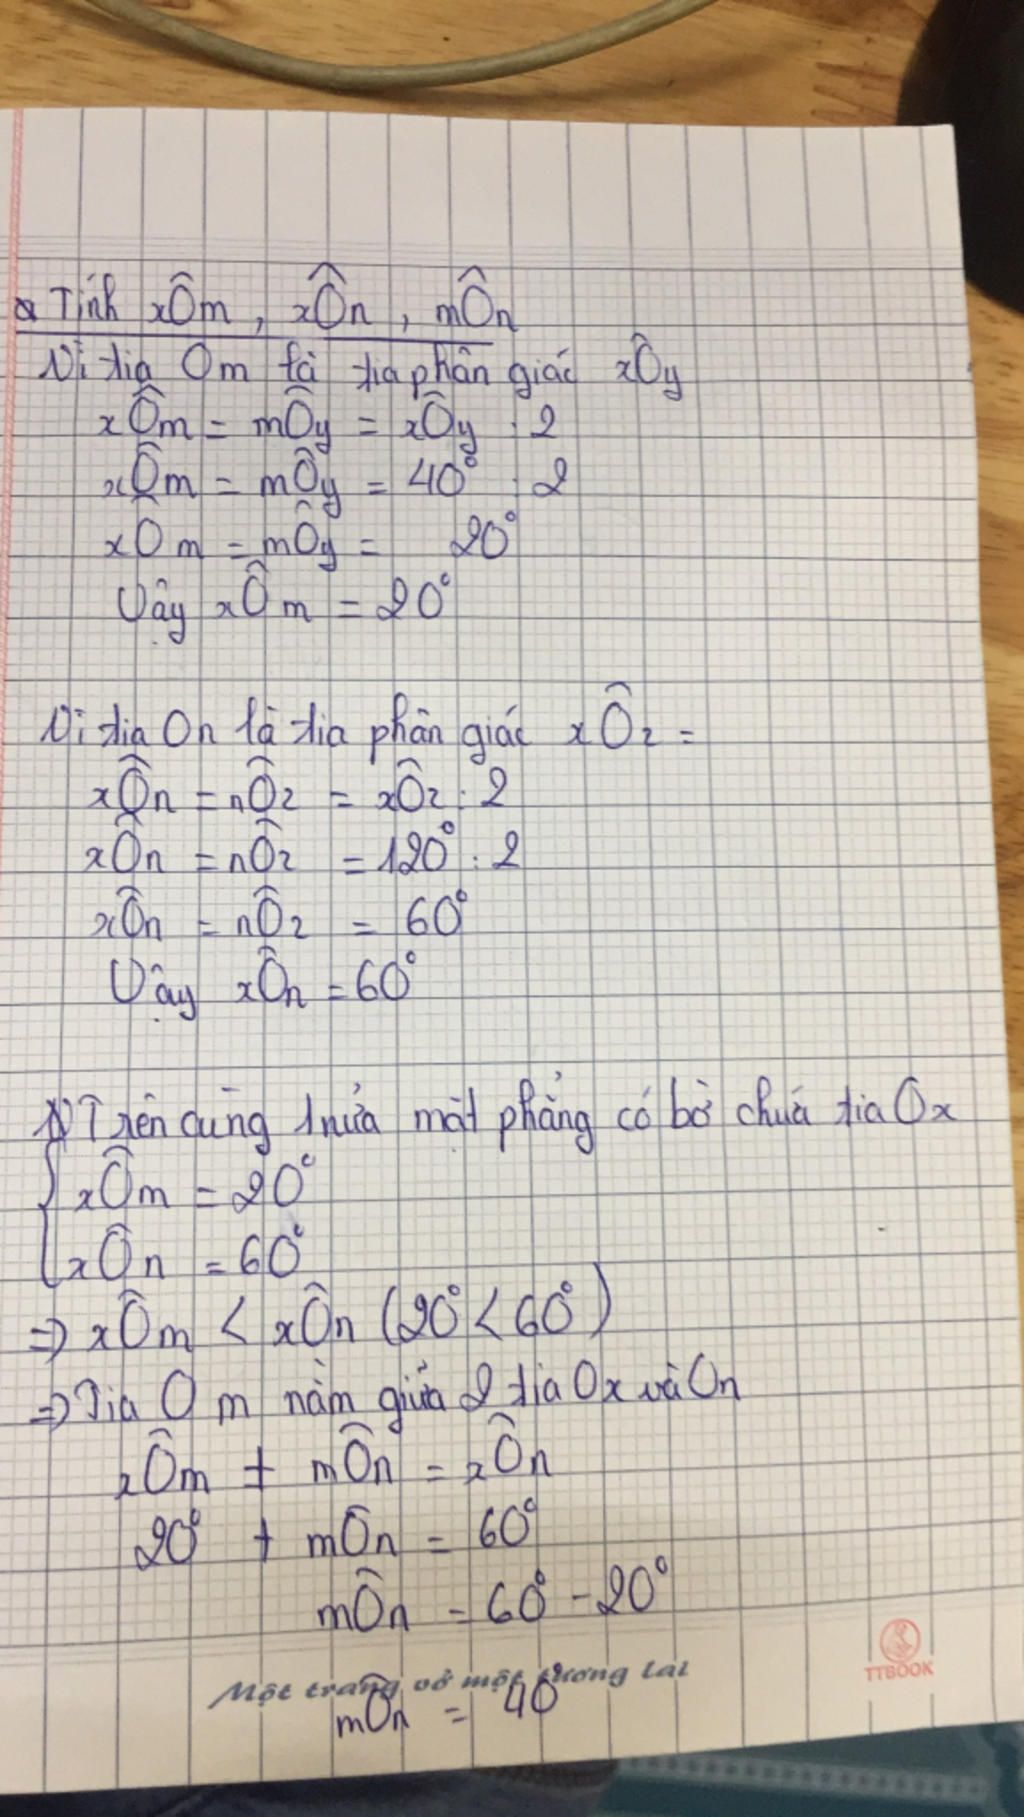 a Tính xÔm, xÔn, mÔn
Vì tia Om là tia phân giác xÔy
xÔm = mÔy = xÔy : 2
xÔm = mÔy = 40° : 2
xÔm = mÔy = 20°
Vậy xÔm = 20°
Vì tia On là tia phân giác xÔz =
xÔn = nÔz = xÔz : 2
xÔn = nÔz = 120° : 2
xÔn = nÔz = 60°
Vậy xÔn = 60°
Trên cùng 1 nửa mặt phẳng có bờ chứa tia Ox
xÔm = 20°
xÔn = 60°
=> xÔm < xÔn (20° < 60°)
=> Tia Om nằm giữa 2 tia Ox và On
xÔm + mÔn = xÔn
20° + mÔn = 60°
mÔn = 60° - 20°
Một trang vở một tương lai
TTBOOK
mÔn = 40°